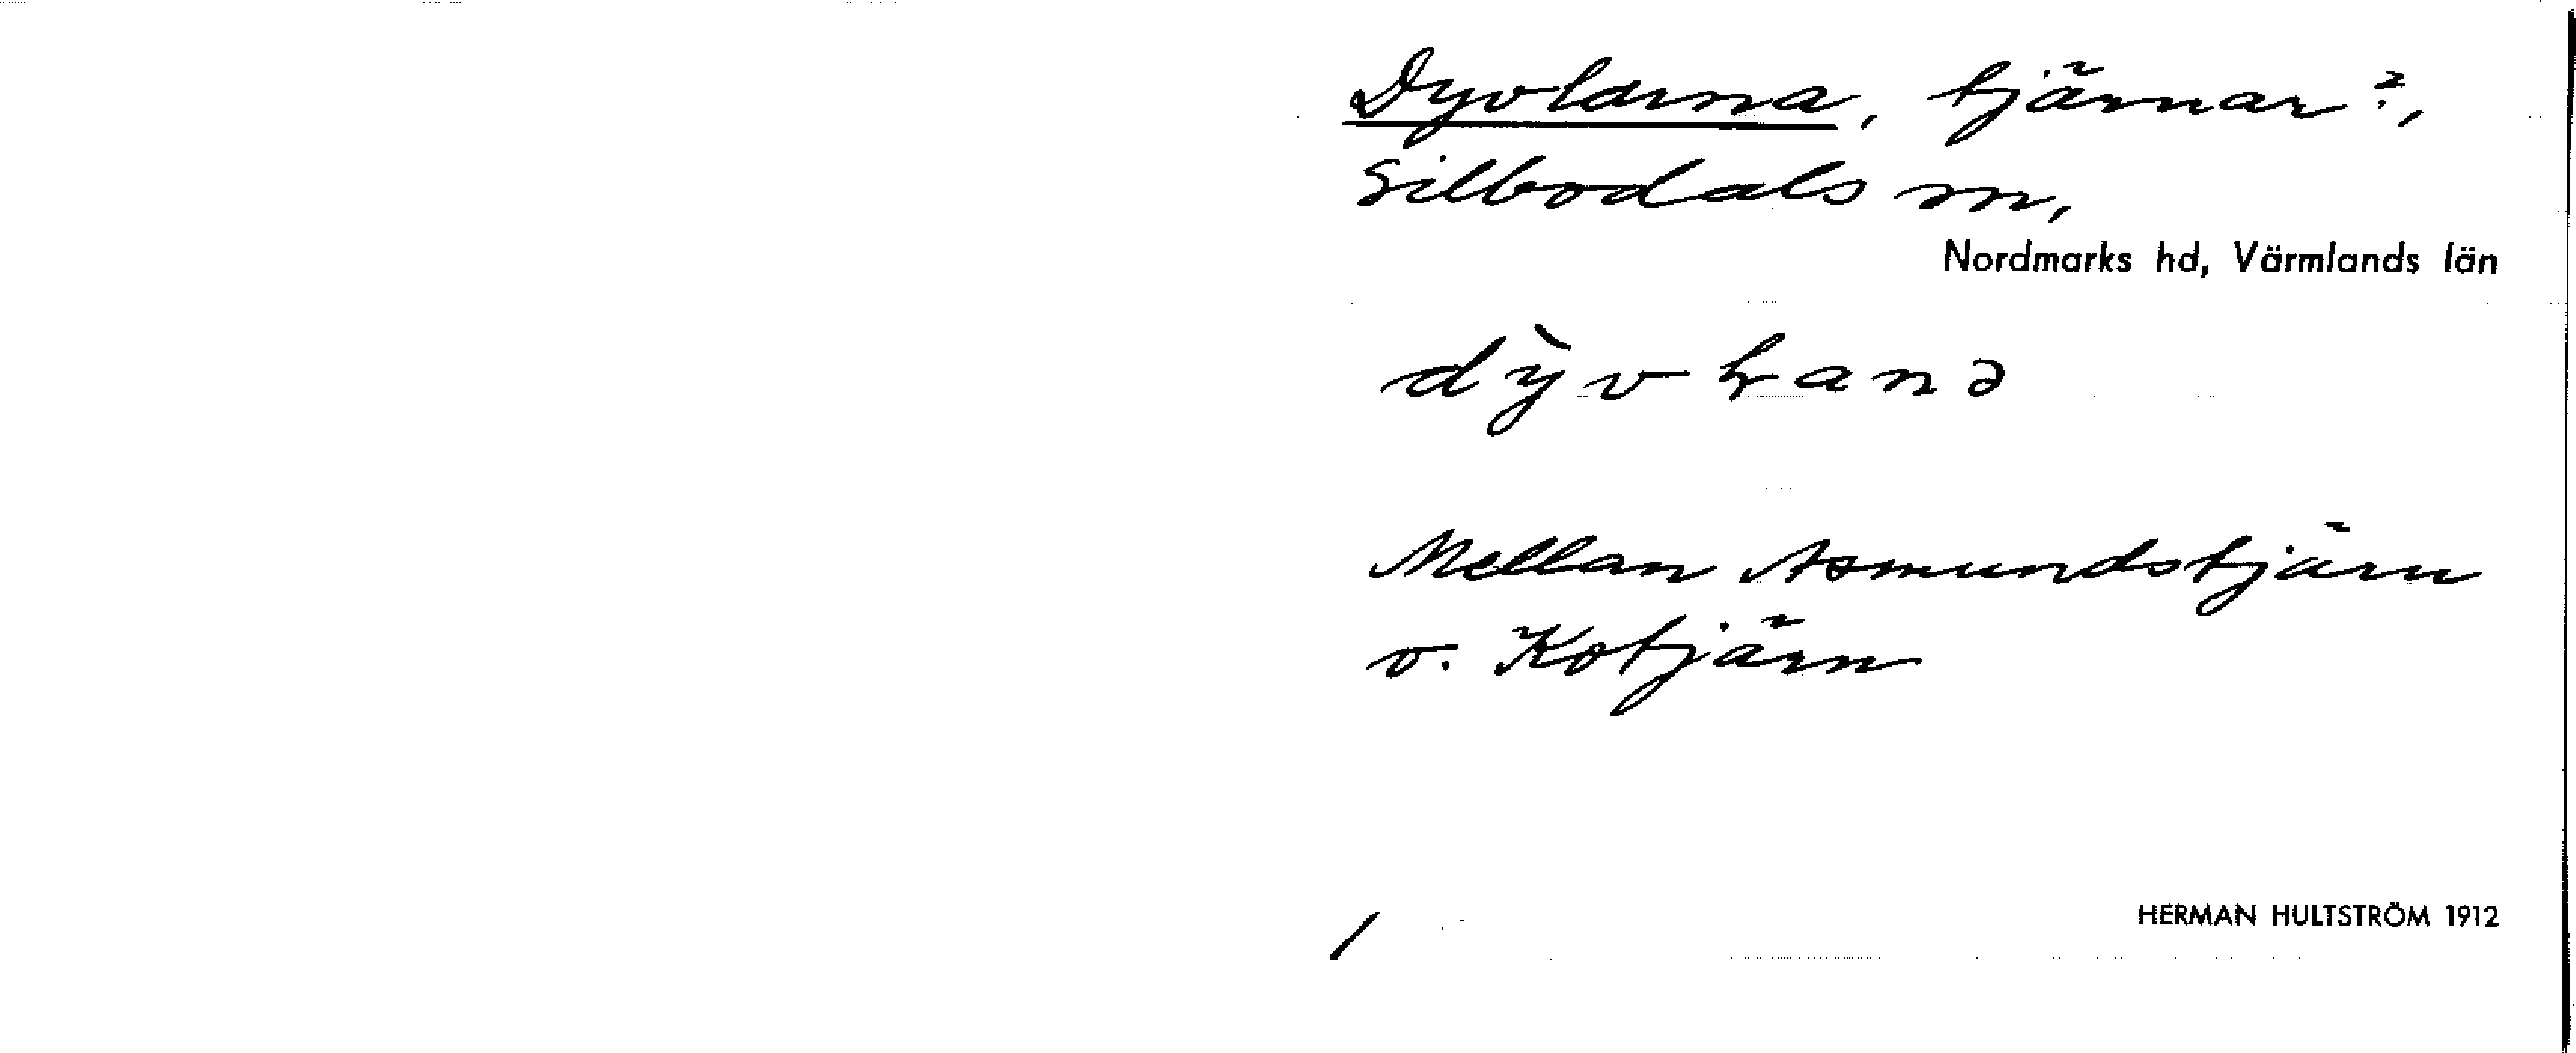 Dyvlarna, tjärnar?,
Silbodals sn,
Nordmarks hd, Värmlands län
Mellan Asmundstjärn
o. Kotjärn
HERMAN HULTSTRÖM 1912